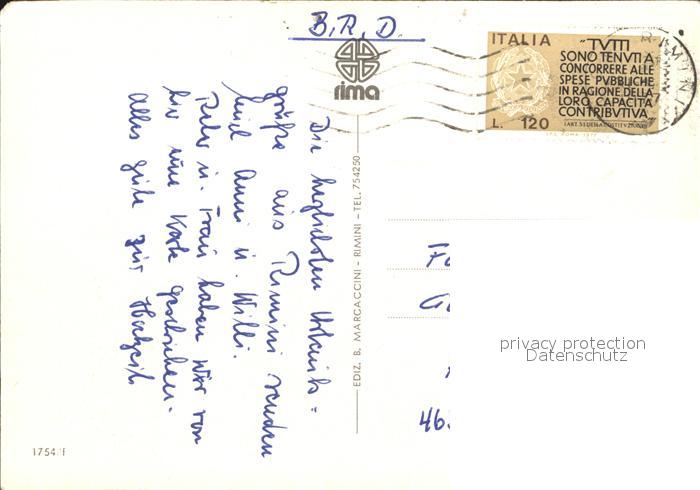 B.R.D.
rima
ITALIA
"TVTTI
SONO TENVTI A
CONCORRERE ALLE
SPESE PVBBLICHE
IN RAGIONE DELLA
LORO CAPACITÀ
CONTRIBVTIVA"
(ART. 53 DELLA COSTITVZIONE)
L. 120
Die herzlichsten Urlaubs=
grüße aus Rimini senden
Euch Anni u. Willi.
Peter u. Frau haben wir von
hier eine Karte geschrieben.
Alles gute zur Hochzeit
EDIZ. B. MARCACCINI - RIMINI - TEL. 754250
Fa
46
privacy protection
Datenschutz
1754/f